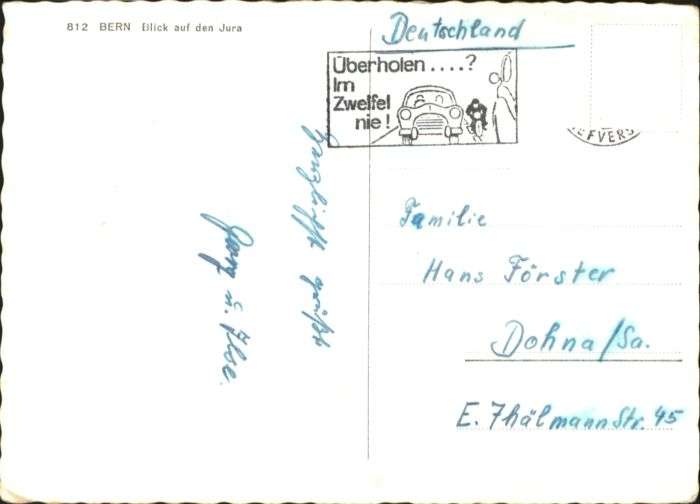 812 BERN Blick auf den Jura
Deutschland
Überholen ....?
Im
Zweifel
nie!
EFVERS
Familie
Hans Förster
Dohna/Sa.
E. Thälmannstr. 45
Herzlichst grüßt
u. Ilse.